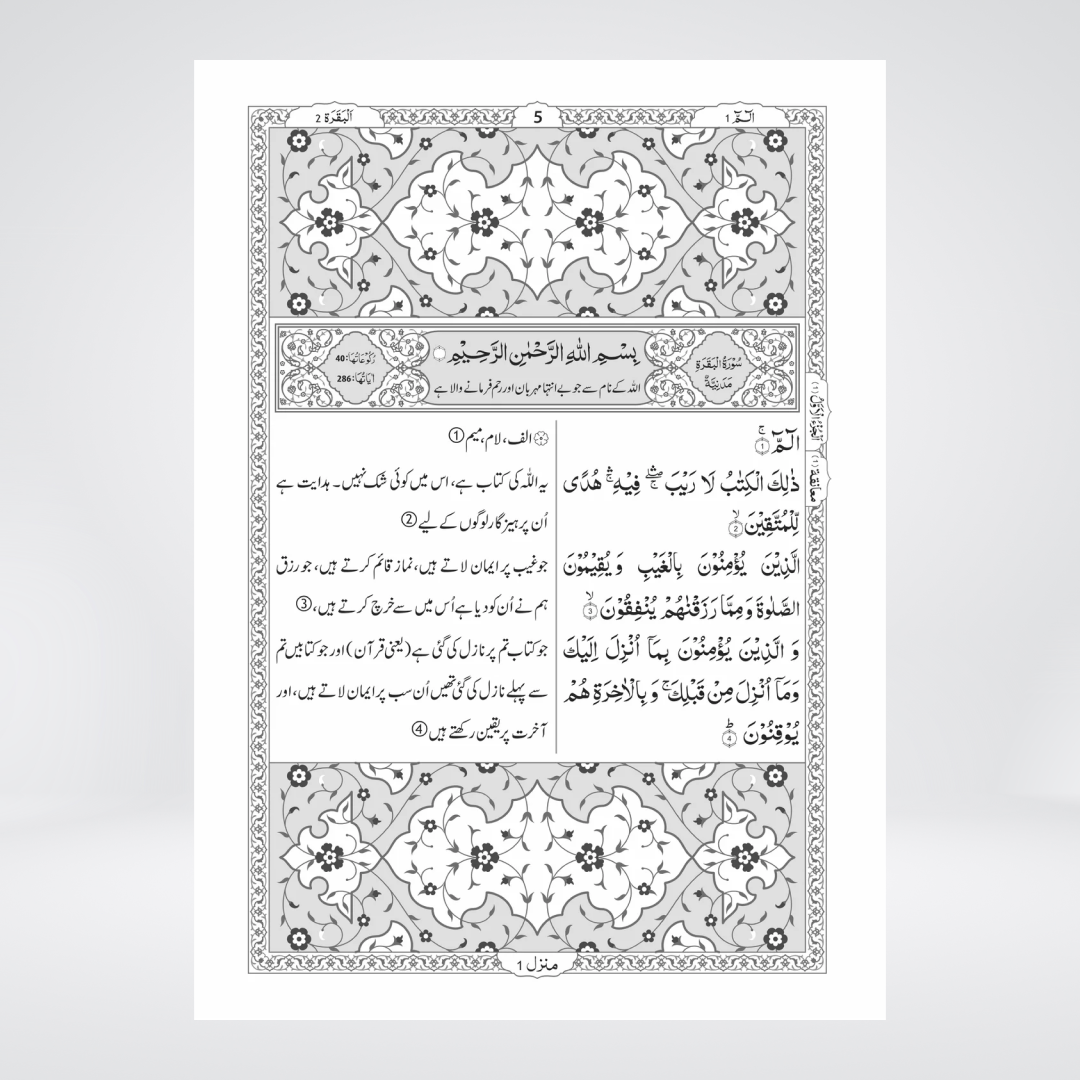 الٓـمّٓ 1
5
اَلْبَقَرَة 2
سُوْرَةُ الْبَقَرَةِ
مَدَنِيَّةٌ
بِسْمِ اللّٰهِ الرَّحْمٰنِ الرَّحِيْمِ
اللہ کے نام سے جو بے انتہا مہربان اور رحم فرمانے والا ہے
رُكُوْعَاتُهَا: 40
اٰيَاتُهَا: 286
الٓـمّٓ ۚ ۝1
ذٰلِكَ الْكِتٰبُ لَا رَيْبَ ۛۖۚ فِيْهِ ۛۚ هُدًى
لِّلْمُتَّقِيْنَ ۙ ۝2
الَّذِيْنَ يُؤْمِنُوْنَ بِالْغَيْبِ وَ يُقِيْمُوْنَ
الصَّلٰوةَ وَ مِمَّا رَزَقْنٰهُمْ يُنْفِقُوْنَ ۙ ۝3
وَ الَّذِيْنَ يُؤْمِنُوْنَ بِمَاۤ اُنْزِلَ اِلَيْكَ
وَ مَاۤ اُنْزِلَ مِنْ قَبْلِكَ ۚ وَ بِالْاٰخِرَةِ هُمْ
يُوْقِنُوْنَ ؕ ۝4
الف، لام، میم ①
یہ اللہ کی کتاب ہے، اس میں کوئی شک نہیں۔ ہدایت ہے
اُن پرہیزگار لوگوں کے لیے ②
جو غیب پر ایمان لاتے ہیں، نماز قائم کرتے ہیں، جو رزق
ہم نے اُن کو دیا ہے اُس میں سے خرچ کرتے ہیں، ③
جو کتاب تم پر نازل کی گئی ہے (یعنی قرآن) اور جو کتابیں تم
سے پہلے نازل کی گئی تھیں اُن سب پر ایمان لاتے ہیں، اور
آخرت پر یقین رکھتے ہیں ④
اَلْجُزْءُ الْاَوَّلُ (١)
معانقة (١)
منزل 1